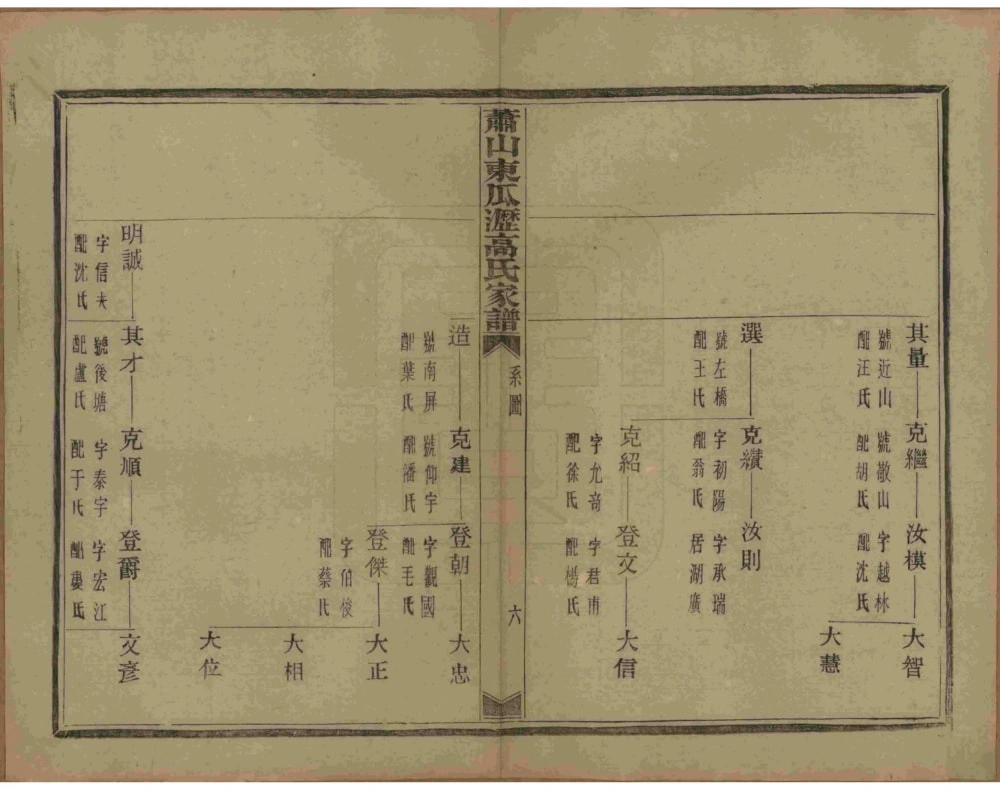 其量
號近山
配汪氏
克繼
號敬山
配胡氏
汝模
字越林
配沈氏
大智
大慧
選
號左橋
配王氏
克纘
字初陽
配翁氏
汝則
字承瑞
居湖廣
克紹
字允奇
配徐氏
登文
字君甫
配楊氏
大信
蕭山東瓜瀝高氏家譜
系圖
六
造
號南屏
配葉氏
克建
號仰宇
配潘氏
登朝
字觀國
配毛氏
大忠
登傑
字伯俊
配蔡氏
大正
大相
大位
明誠
字信夫
配沈氏
其才
號後塘
配盧氏
克順
字泰宇
配于氏
登爵
字宏江
配婁氏
文彥